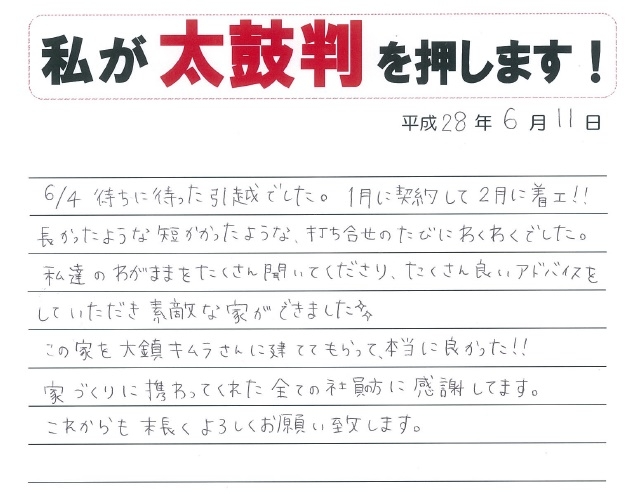 私が太鼓判を押します！
平成28年 6月 11日
6/4 待ちに待った引越でした。 1月に契約して2月に着工!!
長かったような短かかったような、打ち合せのたびにわくわくでした。
私達のわがままをたくさん聞いてくださり、たくさん良いアドバイスを
していただき素敵な家ができました☆☆
この家を大鎮キムラさんに建ててもらって、本当に良かった!!
家づくりに携わってくれた全ての社員の方に感謝してます。
これからも末長くよろしくお願い致します。